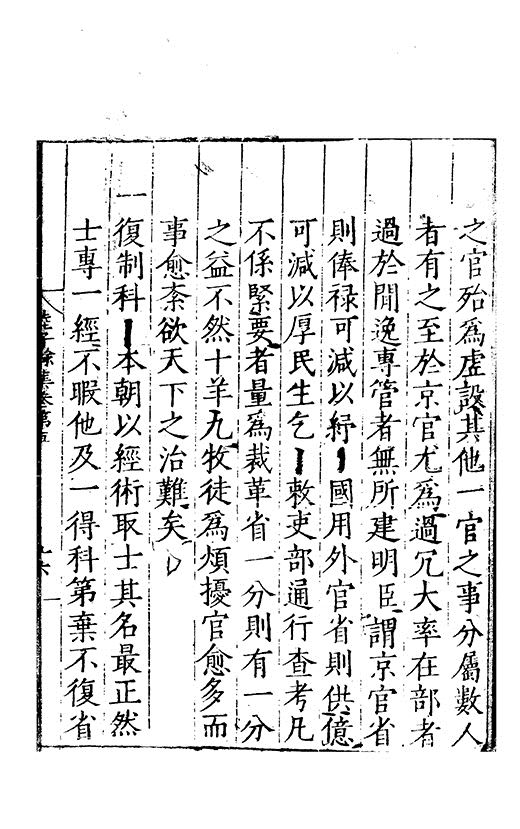 之官殆爲虛設其他一官之事分屬數人
者有之至於京官尤爲過冗大率在部者
過於閒逸專管者無所建明臣謂京官省
則俸祿可減以紓國用外官省則供億
可減以厚民生乞敕吏部通行查考凡
不係緊要者量爲裁革省一分則有一分
之益不然十羊九牧徒爲煩擾官愈多而
事愈紊欲天下之治難矣
一復制科本朝以經術取士其名最正然
士專一經不暇他及一得科第棄不復省
陸子餘集卷第五